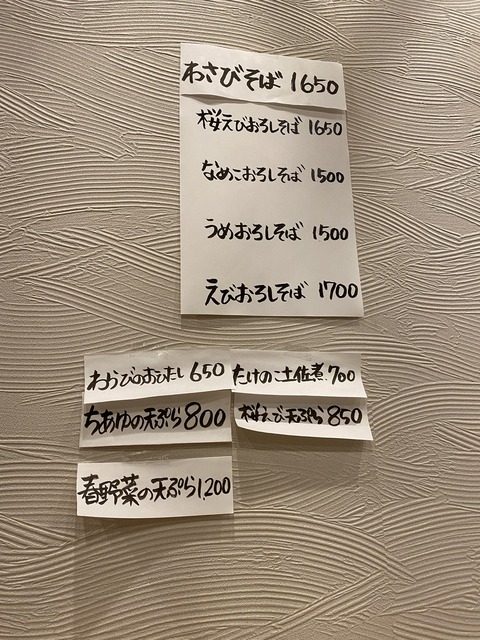 わさびそば 1650
桜えびおろしそば 1650
なめこおろしそば 1500
うめおろしそば 1500
えびおろしそば 1700
わらびのおひたし 650
たけのこ土佐煮 700
ちあゆの天ぷら 800
桜えび天ぷら 850
春野菜の天ぷら 1,200